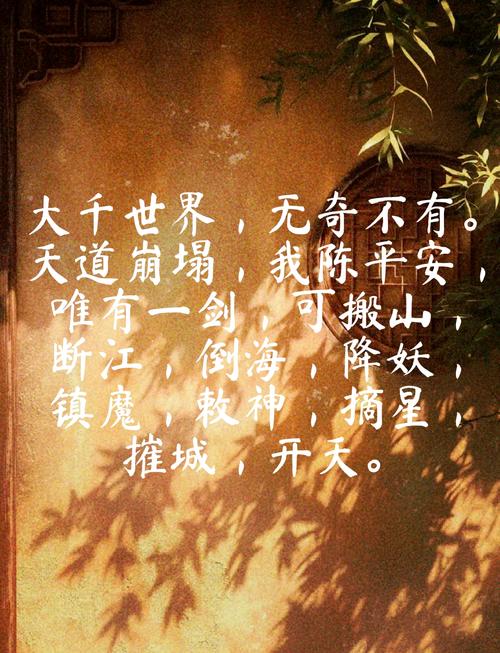 大千世界，无奇不有。
天道崩塌，我陈平安，
唯有一剑，可搬山，
断江，倒海，降妖，
镇魔，敕神，摘星，
摧城，开天。